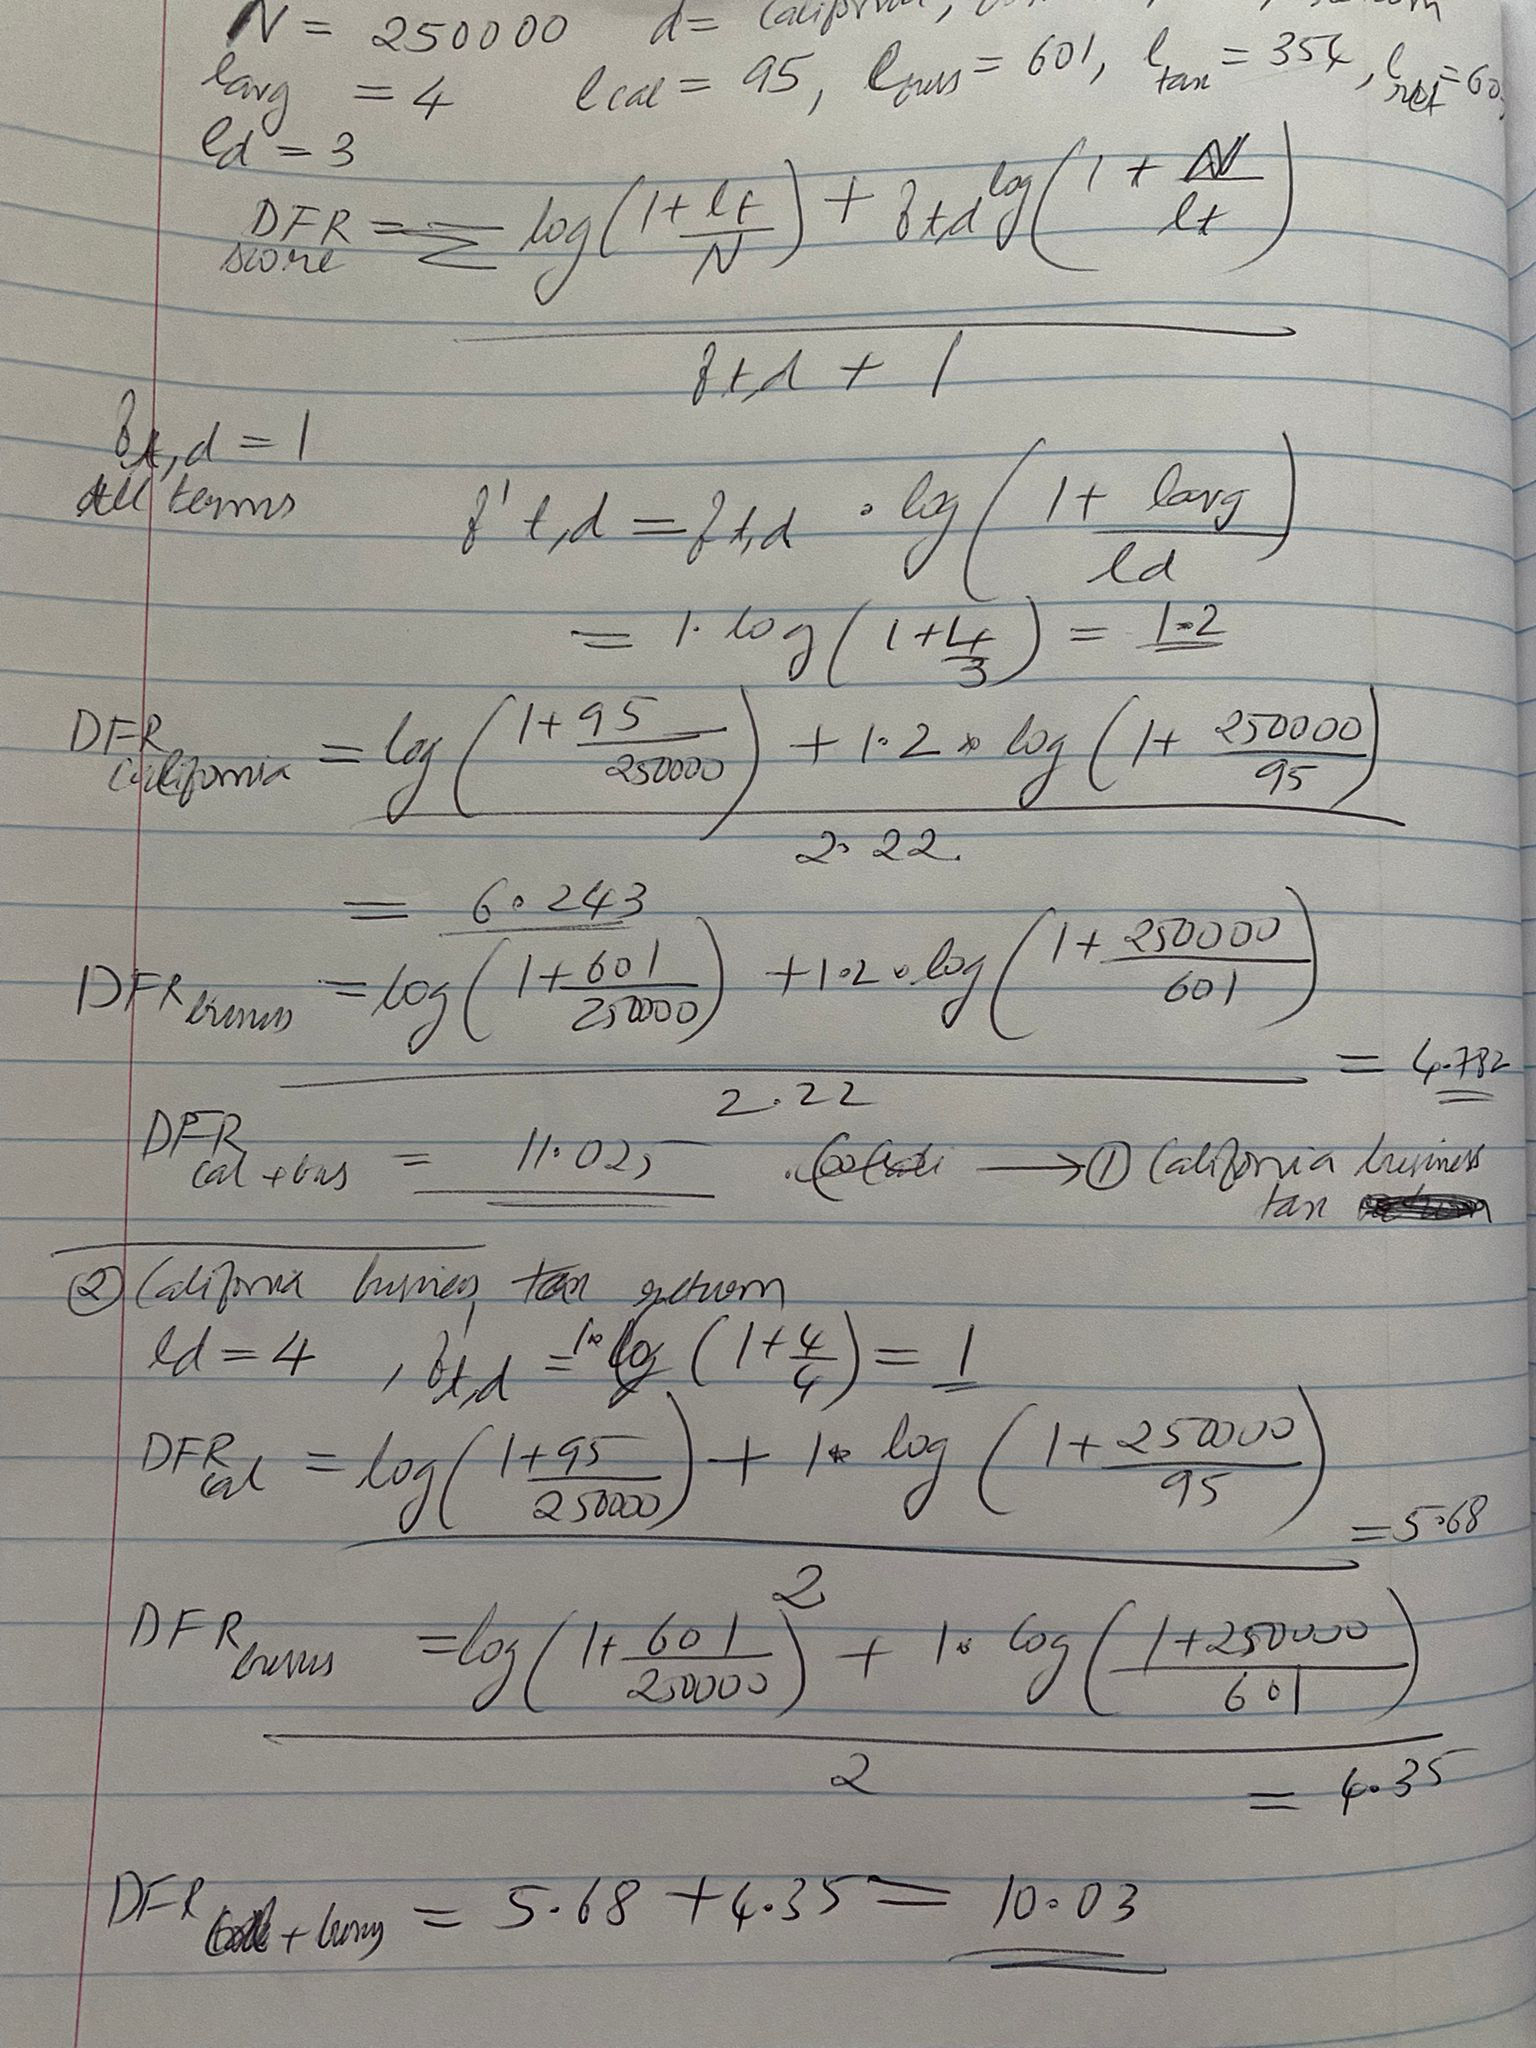 N = 250000 d = California,
lavg = 4 lcal = 95, lbus = 601, ltax = 354, lret = 60
ld = 3
DFR score = Σ log(1 + lt/N) + ft,d log(1 + N/lt)
ft,d + 1
ft,d = 1
All terms
f't,d = ft,d · log(1 + lavg/ld)
= 1. log(1+4/3) = 1.2
DFR California = log(1+95/250000) + 1.2 * log(1 + 250000/95)
2.22
= 6.243
DFR business = log(1+601/250000) + 1.2 * log(1+250000/601)
= 4.782
2.22
DFR cal + bus = 11.025 → ① California business
tax
② California business tax return
ld = 4 , f't,d = 1* log(1+4/4) = 1
DFR cal = log(1+95/250000) + 1* log(1+250000/95)
= 5.68
2
DFR business = log(1+601/250000) + 1* log(1+250000/601)
2
= 4.35
DFR cal + bus = 5.68 + 4.35 = 10.03